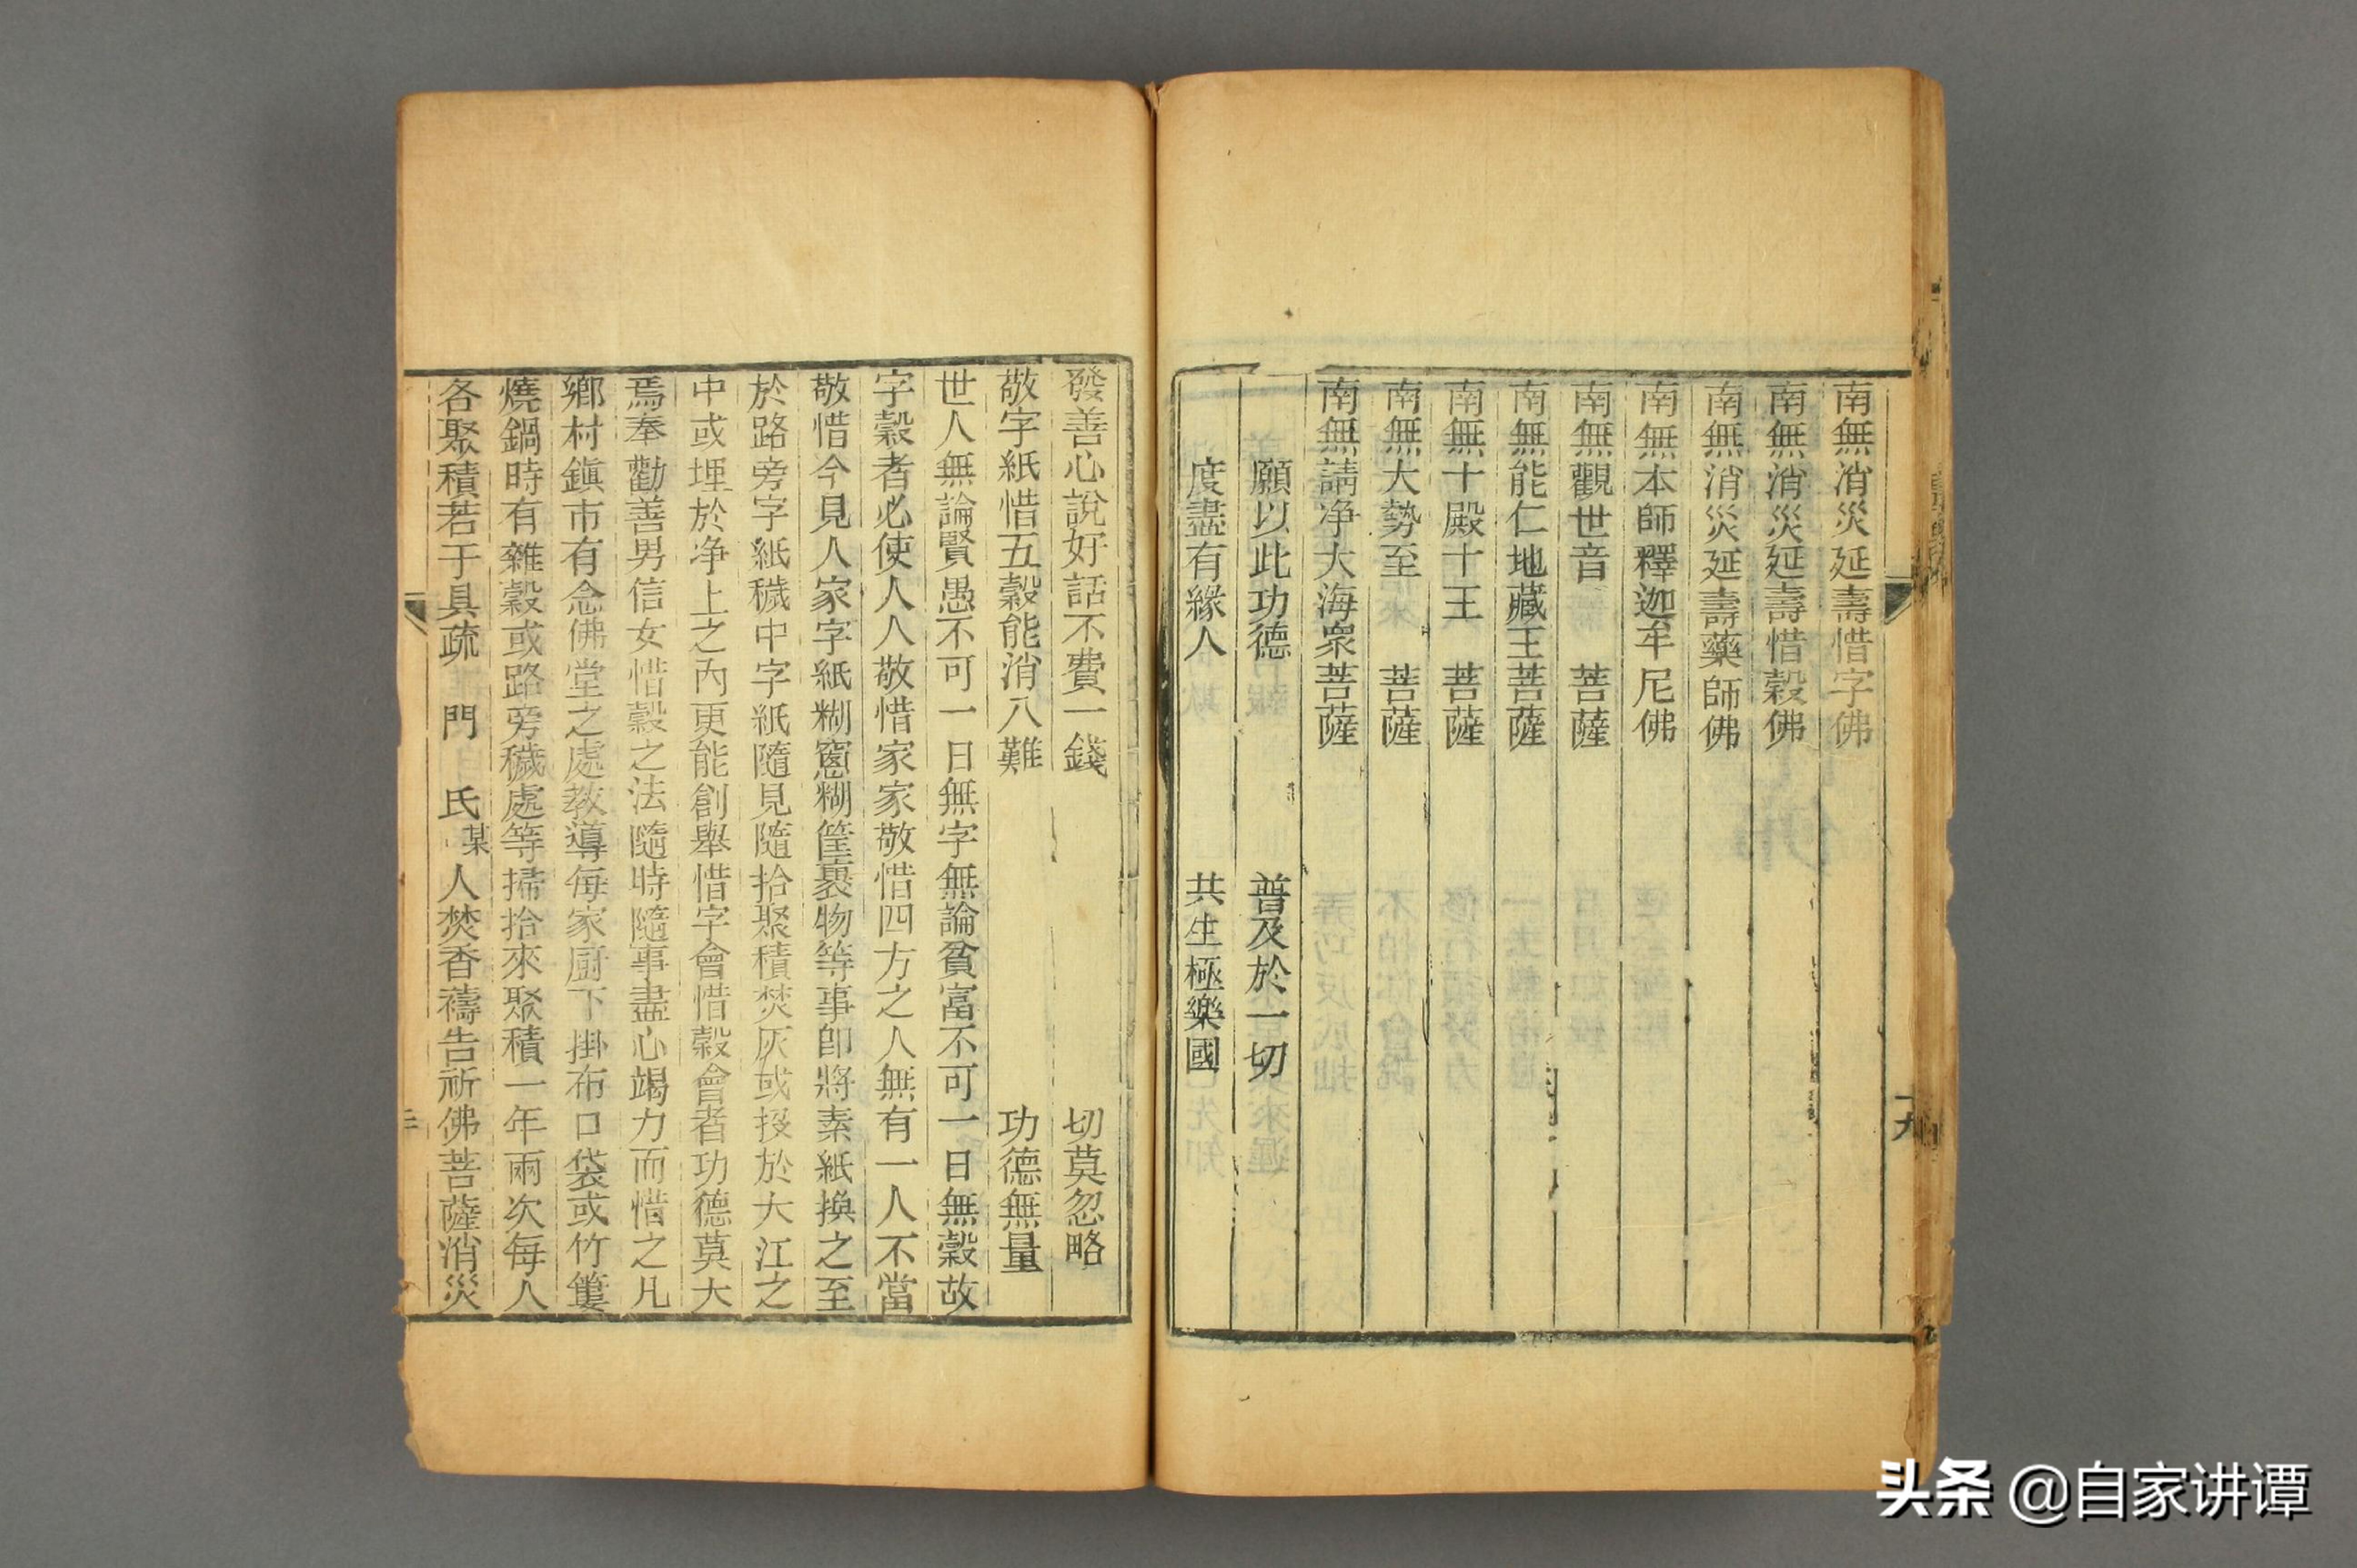 南無消災延壽惜字佛
南無消災延壽惜穀佛
南無消災延壽藥師佛
南無本師釋迦牟尼佛
南無觀世音　菩薩
南無能仁地藏王菩薩
南無十殿十王　菩薩
南無大勢至　菩薩
南無請净大海衆菩薩
願以此功德　普及於一切
度盡有緣人　共生極樂國
發善心說好話不費一錢　切莫忽略
敬字紙惜五穀能消八難　功德無量
世人無論賢愚不可一日無字無論貧富不可一日無穀故
字穀者必使人人敬惜家家敬惜四方之人無有一人不當
敬惜今見人家字紙糊窻糊筐裹物等事卽將素紙換之至
於路旁字紙穢中字紙隨見隨拾聚積焚灰或投於大江之
中或埋於净土之內更能創舉惜字會惜穀會者功德莫大
焉奉勸善男信女惜穀之法隨時隨事盡心竭力而惜之凡
鄉村鎭市有念佛堂之處教導每家厨下掛布口袋或竹簍
燒鍋時有雜穀或路旁穢處等掃拾來聚積一年兩次每人
各聚積若干具疏　門　氏某人焚香禱告祈佛菩薩消災
头条 @自家讲谭